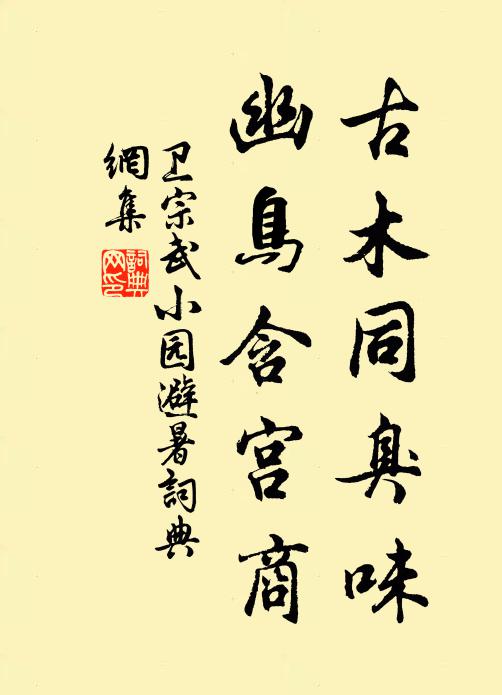 古木同臭味
幽鳥含宫商
卫宗武小园避暑詞典
網集
詞典网印